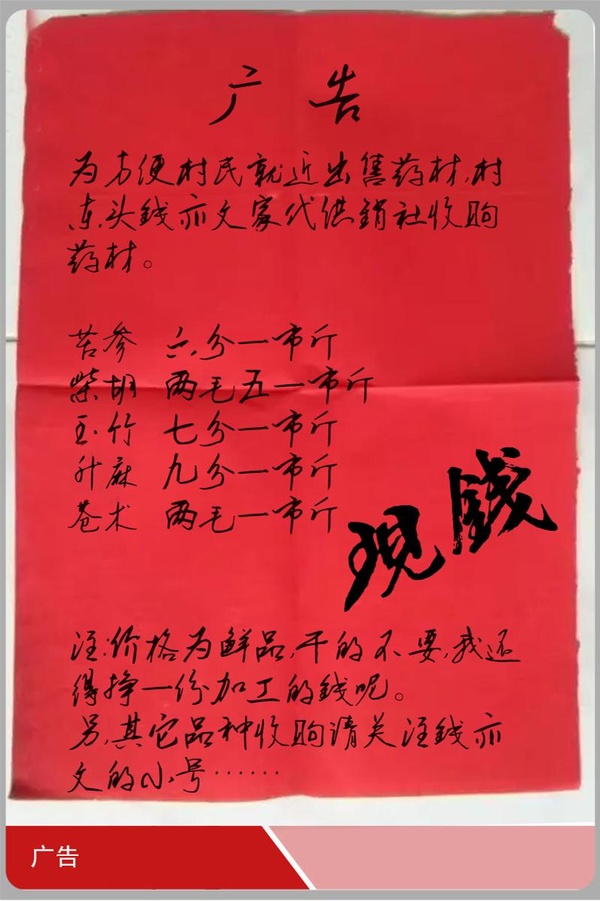 广告
为方便村民就近出售药材,村
东头钱亦文家代供销社收购
药材。
苦参 六分一市斤
柴胡 两毛五一市斤
玉竹 七分一市斤
升麻 九分一市斤
苍术 两毛一市斤
现钱
注:价格为鲜品,干的不要,我还
得挣一份加工的钱呢。
另,其它品种收购请关注钱亦
文的小号……
广告